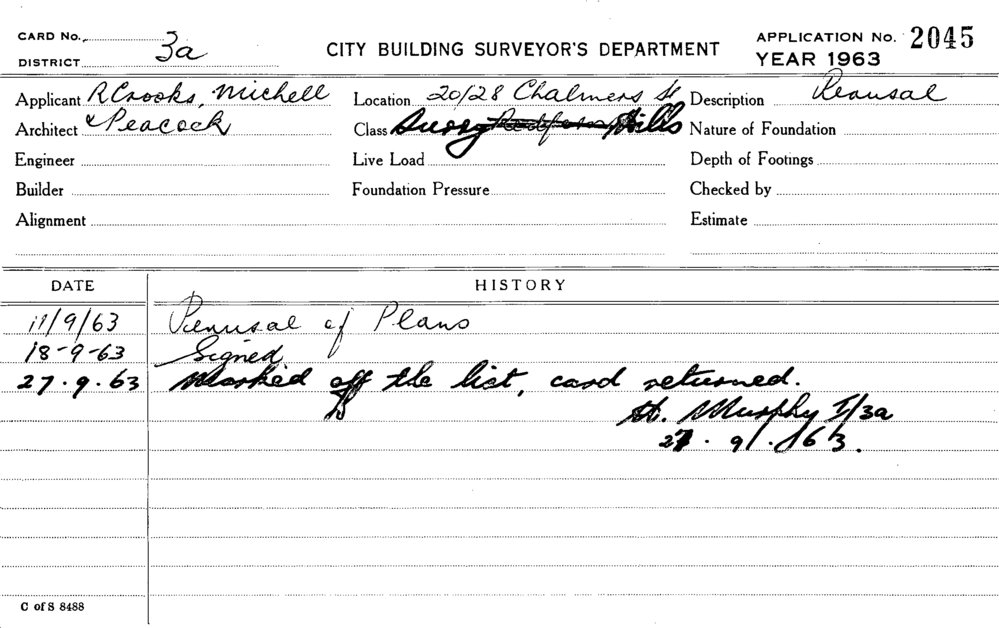 CARD No.
DISTRICT 3a
CITY BUILDING SURVEYOR'S DEPARTMENT
APPLICATION No. 2045
YEAR 1963
Applicant R Crooks, Michell
Location 20/28 Chalmers St
Description Perusal
Architect & Peacock
Class Surry Redfern Hills
Nature of Foundation
Engineer
Live Load
Depth of Footings
Builder
Foundation Pressure
Checked by
Alignment
Estimate
DATE HISTORY
11/9/63 Perusal of Plans
18-9-63 Signed
27.9.63 Marked off the list, card returned.
H. Murphy I/3a
27.9.63.
C of S 8488